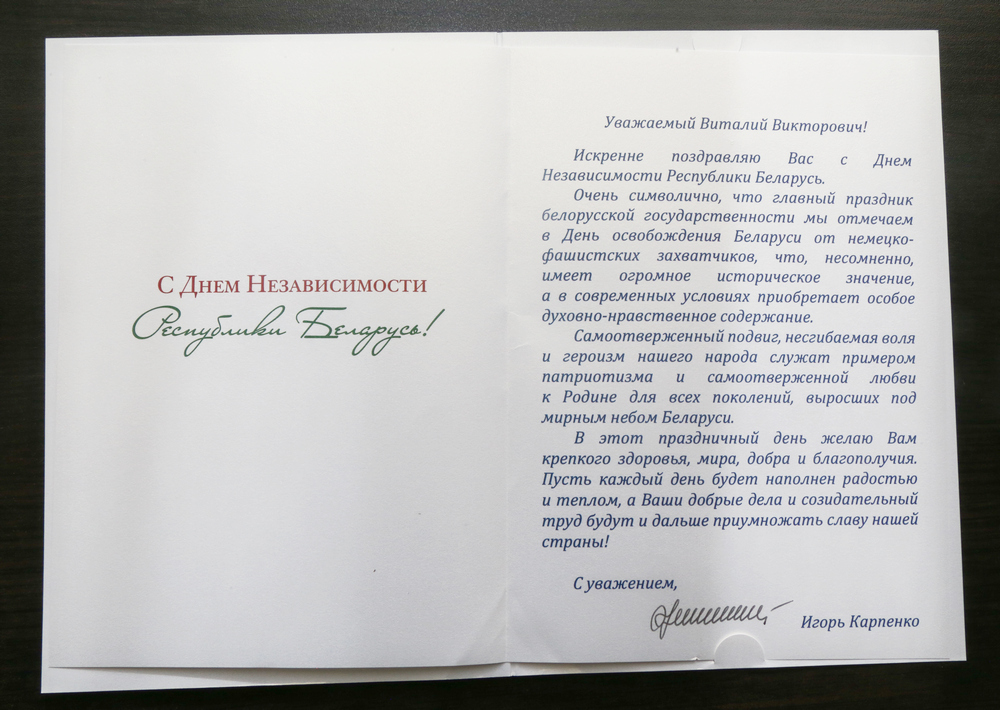 С Днем Независимости
Республики Беларусь!
Уважаемый Виталий Викторович!
Искренне поздравляю Вас с Днем
Независимости Республики Беларусь.
Очень символично, что главный праздник
белорусской государственности мы отмечаем
в День освобождения Беларуси от немецко-
фашистских захватчиков, что, несомненно,
имеет огромное историческое значение,
а в современных условиях приобретает особое
духовно-нравственное содержание.
Самоотверженный подвиг, несгибаемая воля
и героизм нашего народа служат примером
патриотизма и самоотверженной любви
к Родине для всех поколений, выросших под
мирным небом Беларуси.
В этот праздничный день желаю Вам
крепкого здоровья, мира, добра и благополучия.
Пусть каждый день будет наполнен радостью
и теплом, а Ваши добрые дела и созидательный
труд будут и дальше приумножать славу нашей
страны!
С уважением,
Игорь Карпенко